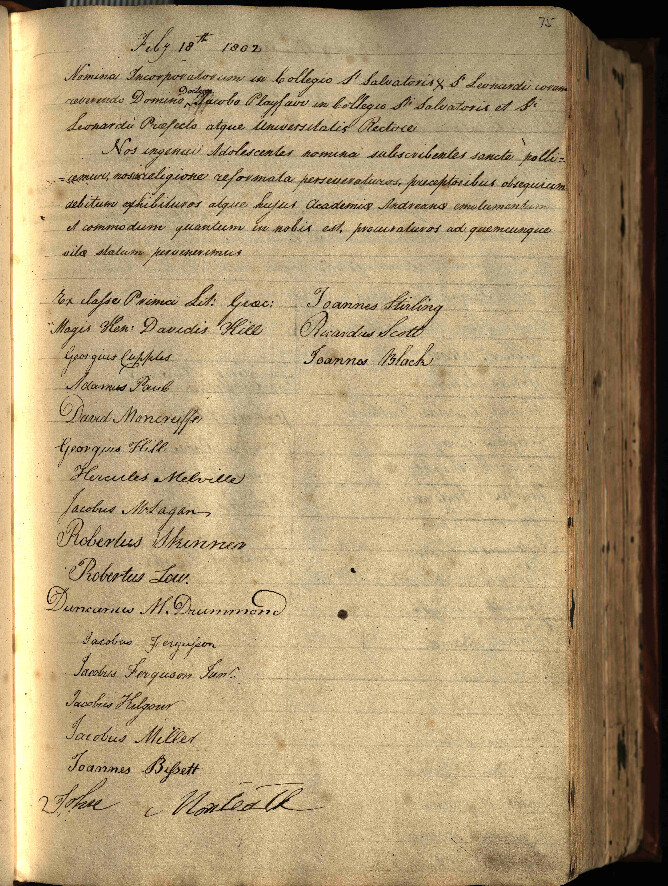 75
Feby 18th 1802
Nomina Incorporatorum in Collegio Sti Salvatoris & Sti Leonardi coram
reverendo Domino Doctore Jacobo Playfair in Collegio Sti Salvatoris et Sti
Leonardi Præfecto atque Universitatis Rectore
Nos ingenui Adolescentes nomina subscribentes sancte polli=
=cemur, nos in religione reformata perseveraturos, preceptoribus obsequium
debitum exhibituros atque hujus Academiæ Andreanæ emolumentum
et commodum quantum in nobis est, procuraturos ad quemcunque
vitæ statum pervenerimus
Ex classe Prima Lit: Græc:
Magis Hen: Davidis Hill
Georgius Cupples
Adamus Paub
David Moncrieffe
Georgius Hill
Hercules Melville
Jacobus McLagan
Robertus Skinner
Robertus Low.
Duncanus M. Drummond
Jacobus Ferguson
Jacobus Ferguson Junr.
Jacobus Kilgour
Jacobus Miller
Joannes Bissett
John Monteath
Joannes Stirling
Ricardus Scott
Joannes Black